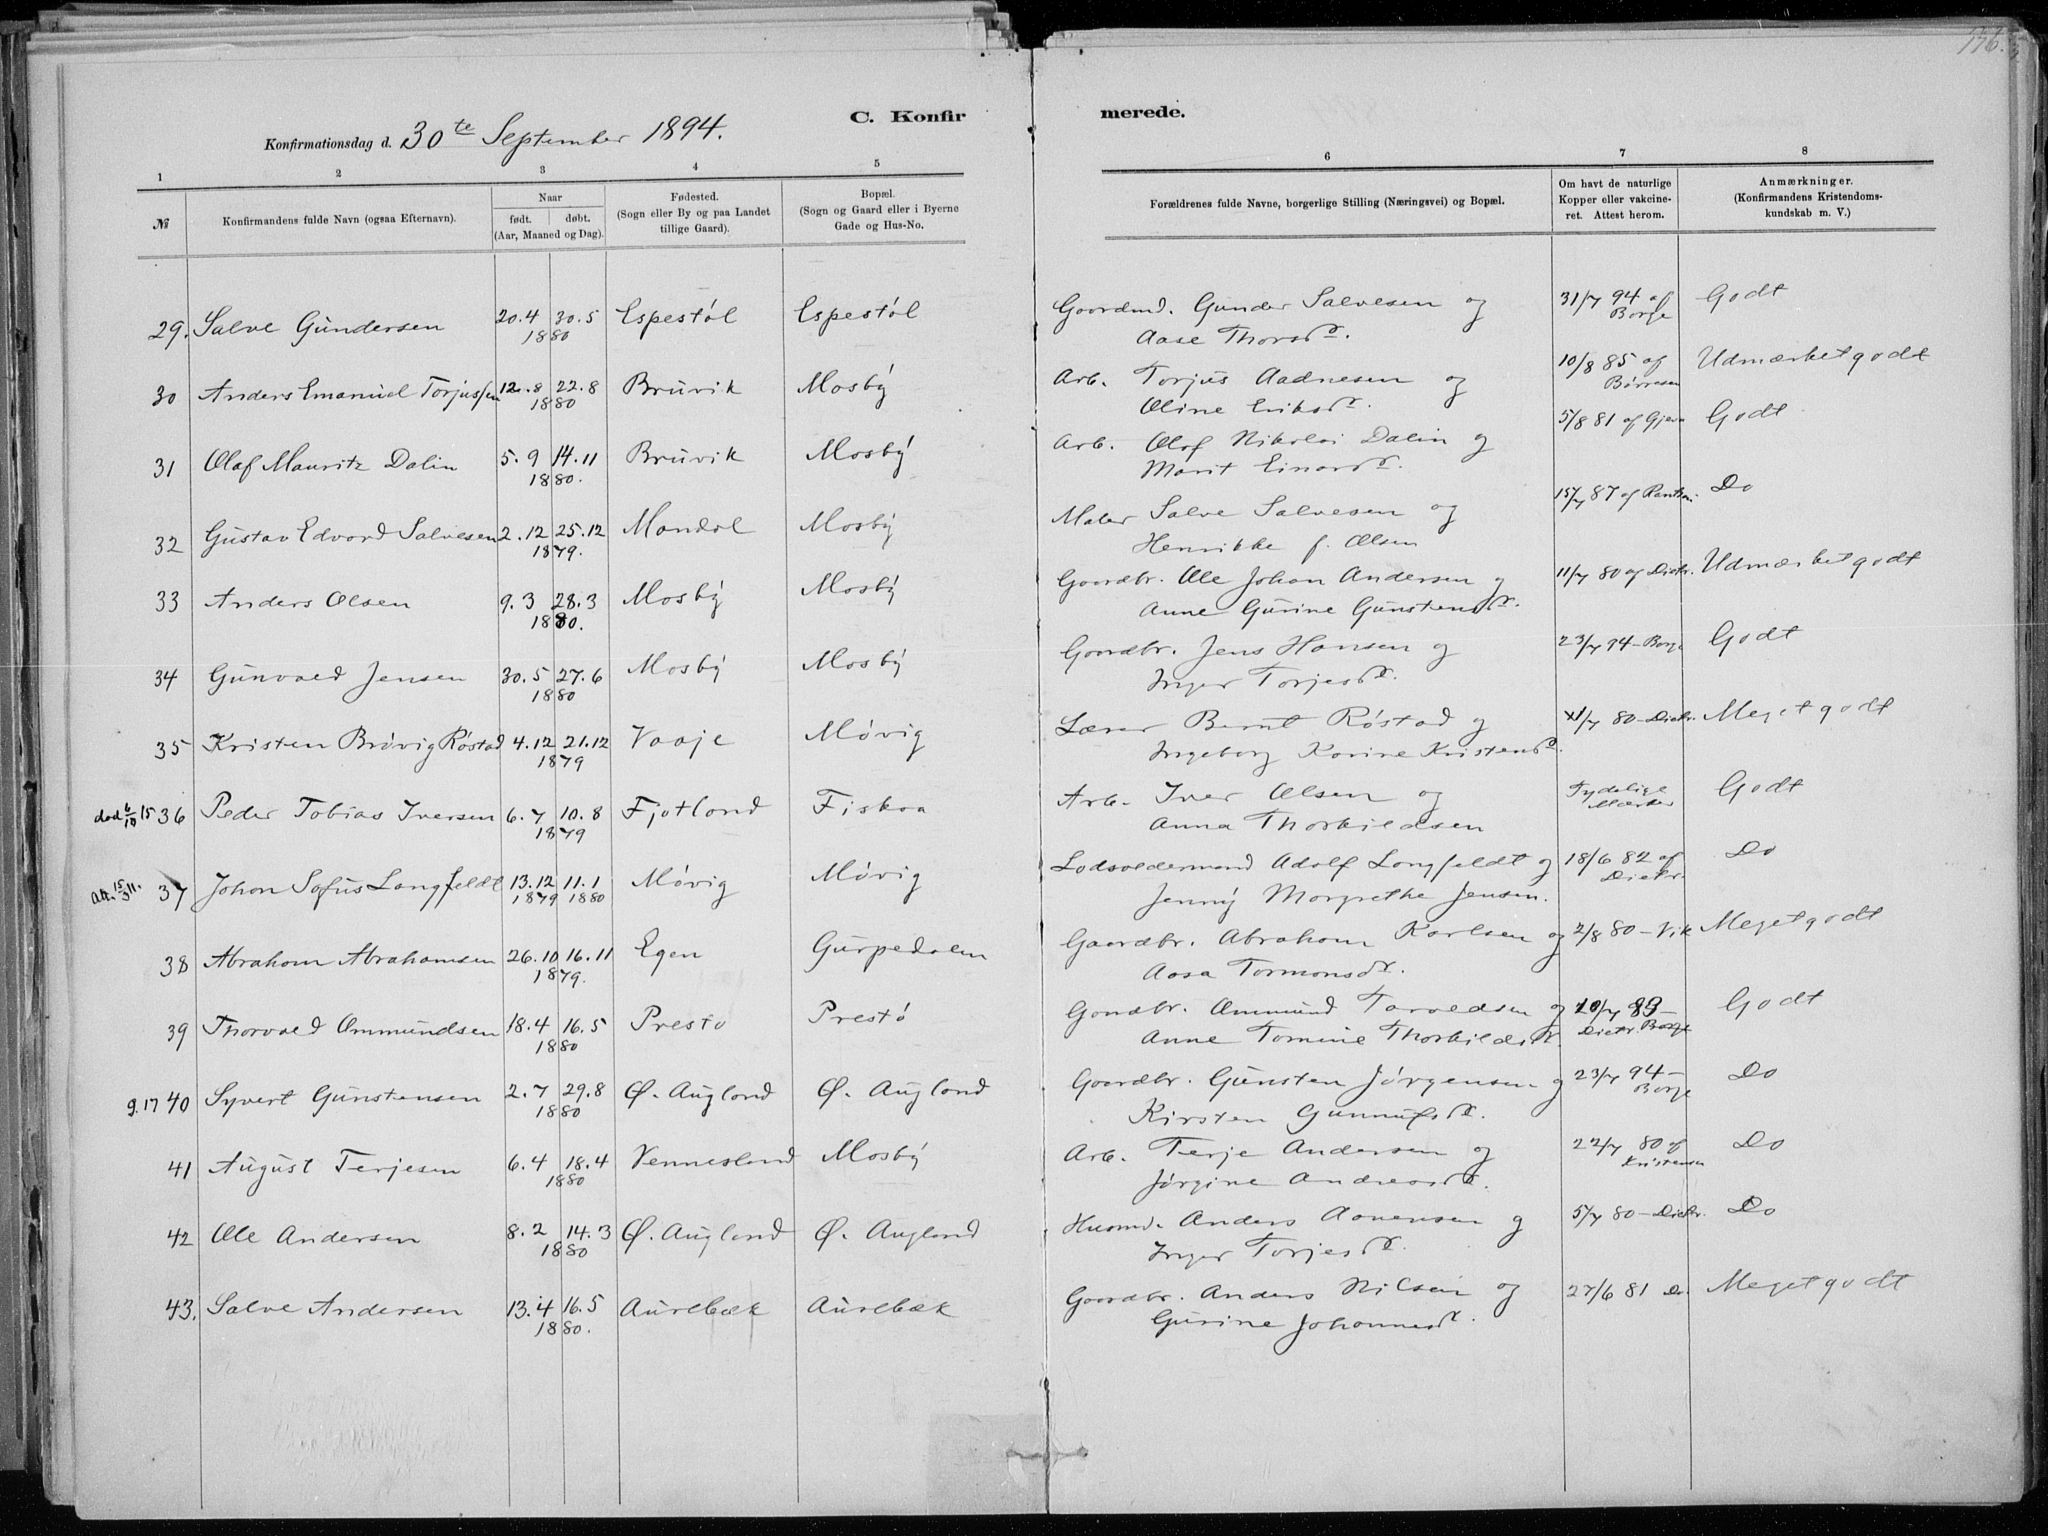 136.
C. Konfirmerede.
Konfirmationsdag d. 30te September 1894.
1 2 3 4 5 6 7 8
№ Konfirmandens fulde Navn (ogsaa Efternavn). Naar født. døbt. (Aar, Maaned og Dag). Fødested. (Sogn eller By og paa Landet tillige Gaard). Bopæl. (Sogn og Gaard eller i Byerne Gade og Hus-No. Forældrenes fulde Navne, borgerlige Stilling (Næringsvei) og Bopæl. Om havt de naturlige Kopper eller vakcineret. Attest herom. Anmærkninger. (Konfirmandens Kristendomskundskab m. V.)
29. Salve Gundersen 20.4 30.5 1880 Espestøl Espestøl Gaardmd. Gunder Salvesen og 31/7 94 af Borge Godt
Aase Thorsdr.
30 Anders Emanuel Torjussen 12.8 22.8 1880 Bruvik Mosby Arb. Torjus Aadnesen og 10/8 85 af Børresen Udmærket godt
Oline Eriksdr.
31 Olaf Mauritz Dalin 5.9 14.11 1880. Bruvik Mosby Arb. Olof Nikolai Dalin og 5/8 81 af Godt
Marit Einarsdr.
32 Gustav Edvard Salvesen 2.12 25.12 1879. Mandal Mosby Maler Salve Salvesen og 15/7 87 af Do
Henrikke f. Olsen
33 Anders Olsen 9.3 28.3 1880. Mosby Mosby Gaardbr. Ole Johan Andersen og 11/7 80 af Dietr. Udmærket godt
Anne Gurine Gunstensdr.
34 Gunvald Jensen 30.5 27.6 1880 Mosby Mosby Gaardbr. Jens Hansen og 23/7 94 - Borge Godt
Inger Torjesdr.
35 Kristen Brøvig Røstad 4.12 21.12 1879 Vaaje Møvig Lærer Bernt Røstad og 80 - Dietr. Meget godt
Ingeborg Karine Kristensdr.
død 6/10 15 36 Peder Tobias Iversen 6.7 10.8 1879 Fjotland Fiskaa Arb. Iver Olsen og Tydelige Mærker Godt
Anna Thorkildsen
Att. 15/3 11. 37 Johan Sofus Langfeldt 13.12 1879 11.1 1880 Møvig Møvig Lodsoldermand Adolf Langfeldt og 18/6 82 af Dietr. Do
Jenny Margrethe Jensen.
38 Abraham Abrahamsen 26.10 16.11 1879. Egen Gurpedalen Gaardbr. Abraham Karlsen og 2/8 80 - Vik Meget godt
Aasa Tormonsdr.
39 Thorvald Ommundsen 18.4 16.5 1880 Prestø Prestø Gaardbr. Ommund Tarvaldsen og 10/7 83 - Dietr. Borge Godt
Anne Tomine Thorkildsdr.
g.17 40 Syvert Gunstensen 2.7 29.8 1880 Ø. Augland Ø. Augland Gaardbr. Gunsten Jørgensen og 23/7 94 - Borge Do
Kirsten Gunnulfsdr.
41 August Terjesen 6.4 18.4 1880 Vennesland Mosby Arb. Terje Andersen og 22/7 80 af Kristensen Do
Jørgine Andreasdr.
42 Ole Andersen 8.2 14.3 1880 Ø. Augland Ø. Augland Husmd. Anders Aanensen og 5/7 80 - Dietr. Do
Inger Torjesdr.
43. Salve Andersen 13.4 16.5 1880. Aurebæk Aurebæk Gaardbr. Anders Nilsen og 27/6 81 D. Meget godt
Gurine Johannesdr.